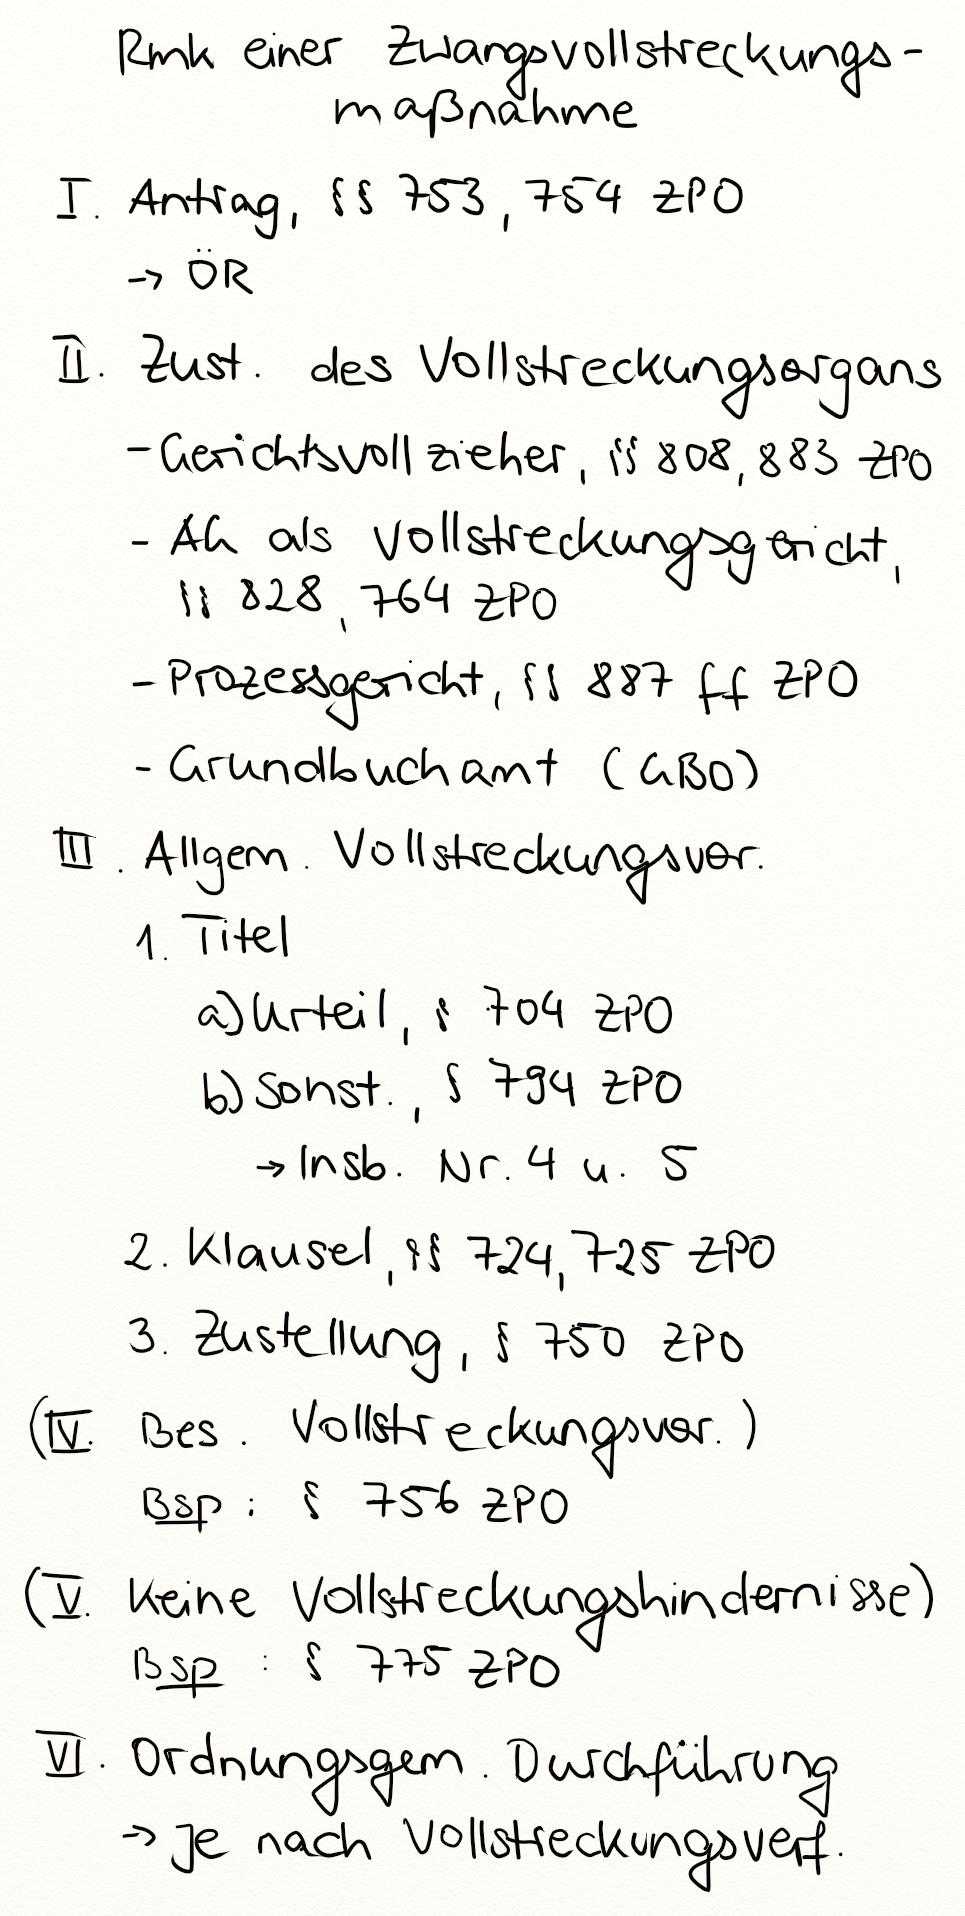 Rmk einer Zwangsvollstreckungs-
maßnahme
I. Antrag, §§ 753, 754 ZPO
→ ÖR
II. Zust. des Vollstreckungsorgans
- Gerichtsvollzieher, §§ 808, 883 ZPO
- AG als Vollstreckungsgericht,
§§ 828, 764 ZPO
- Prozessgericht, §§ 887 ff ZPO
- Grundbuchamt (GBO)
III. Allgem. Vollstreckungsvor.
1. Titel
a) Urteil, § 704 ZPO
b) Sonst., § 794 ZPO
→ Insb. Nr. 4 u. 5
2. Klausel, §§ 724, 725 ZPO
3. Zustellung, § 750 ZPO
(IV. Bes. Vollstreckungsvor.)
Bsp: § 756 ZPO
(V. Keine Vollstreckungshindernisse)
Bsp: § 775 ZPO
VI. Ordnungsgem. Durchführung
→ je nach Vollstreckungsverf.